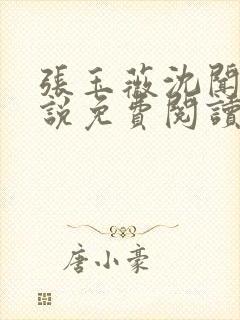 張玉薇沈聞
說免費閱讀
唐小豪